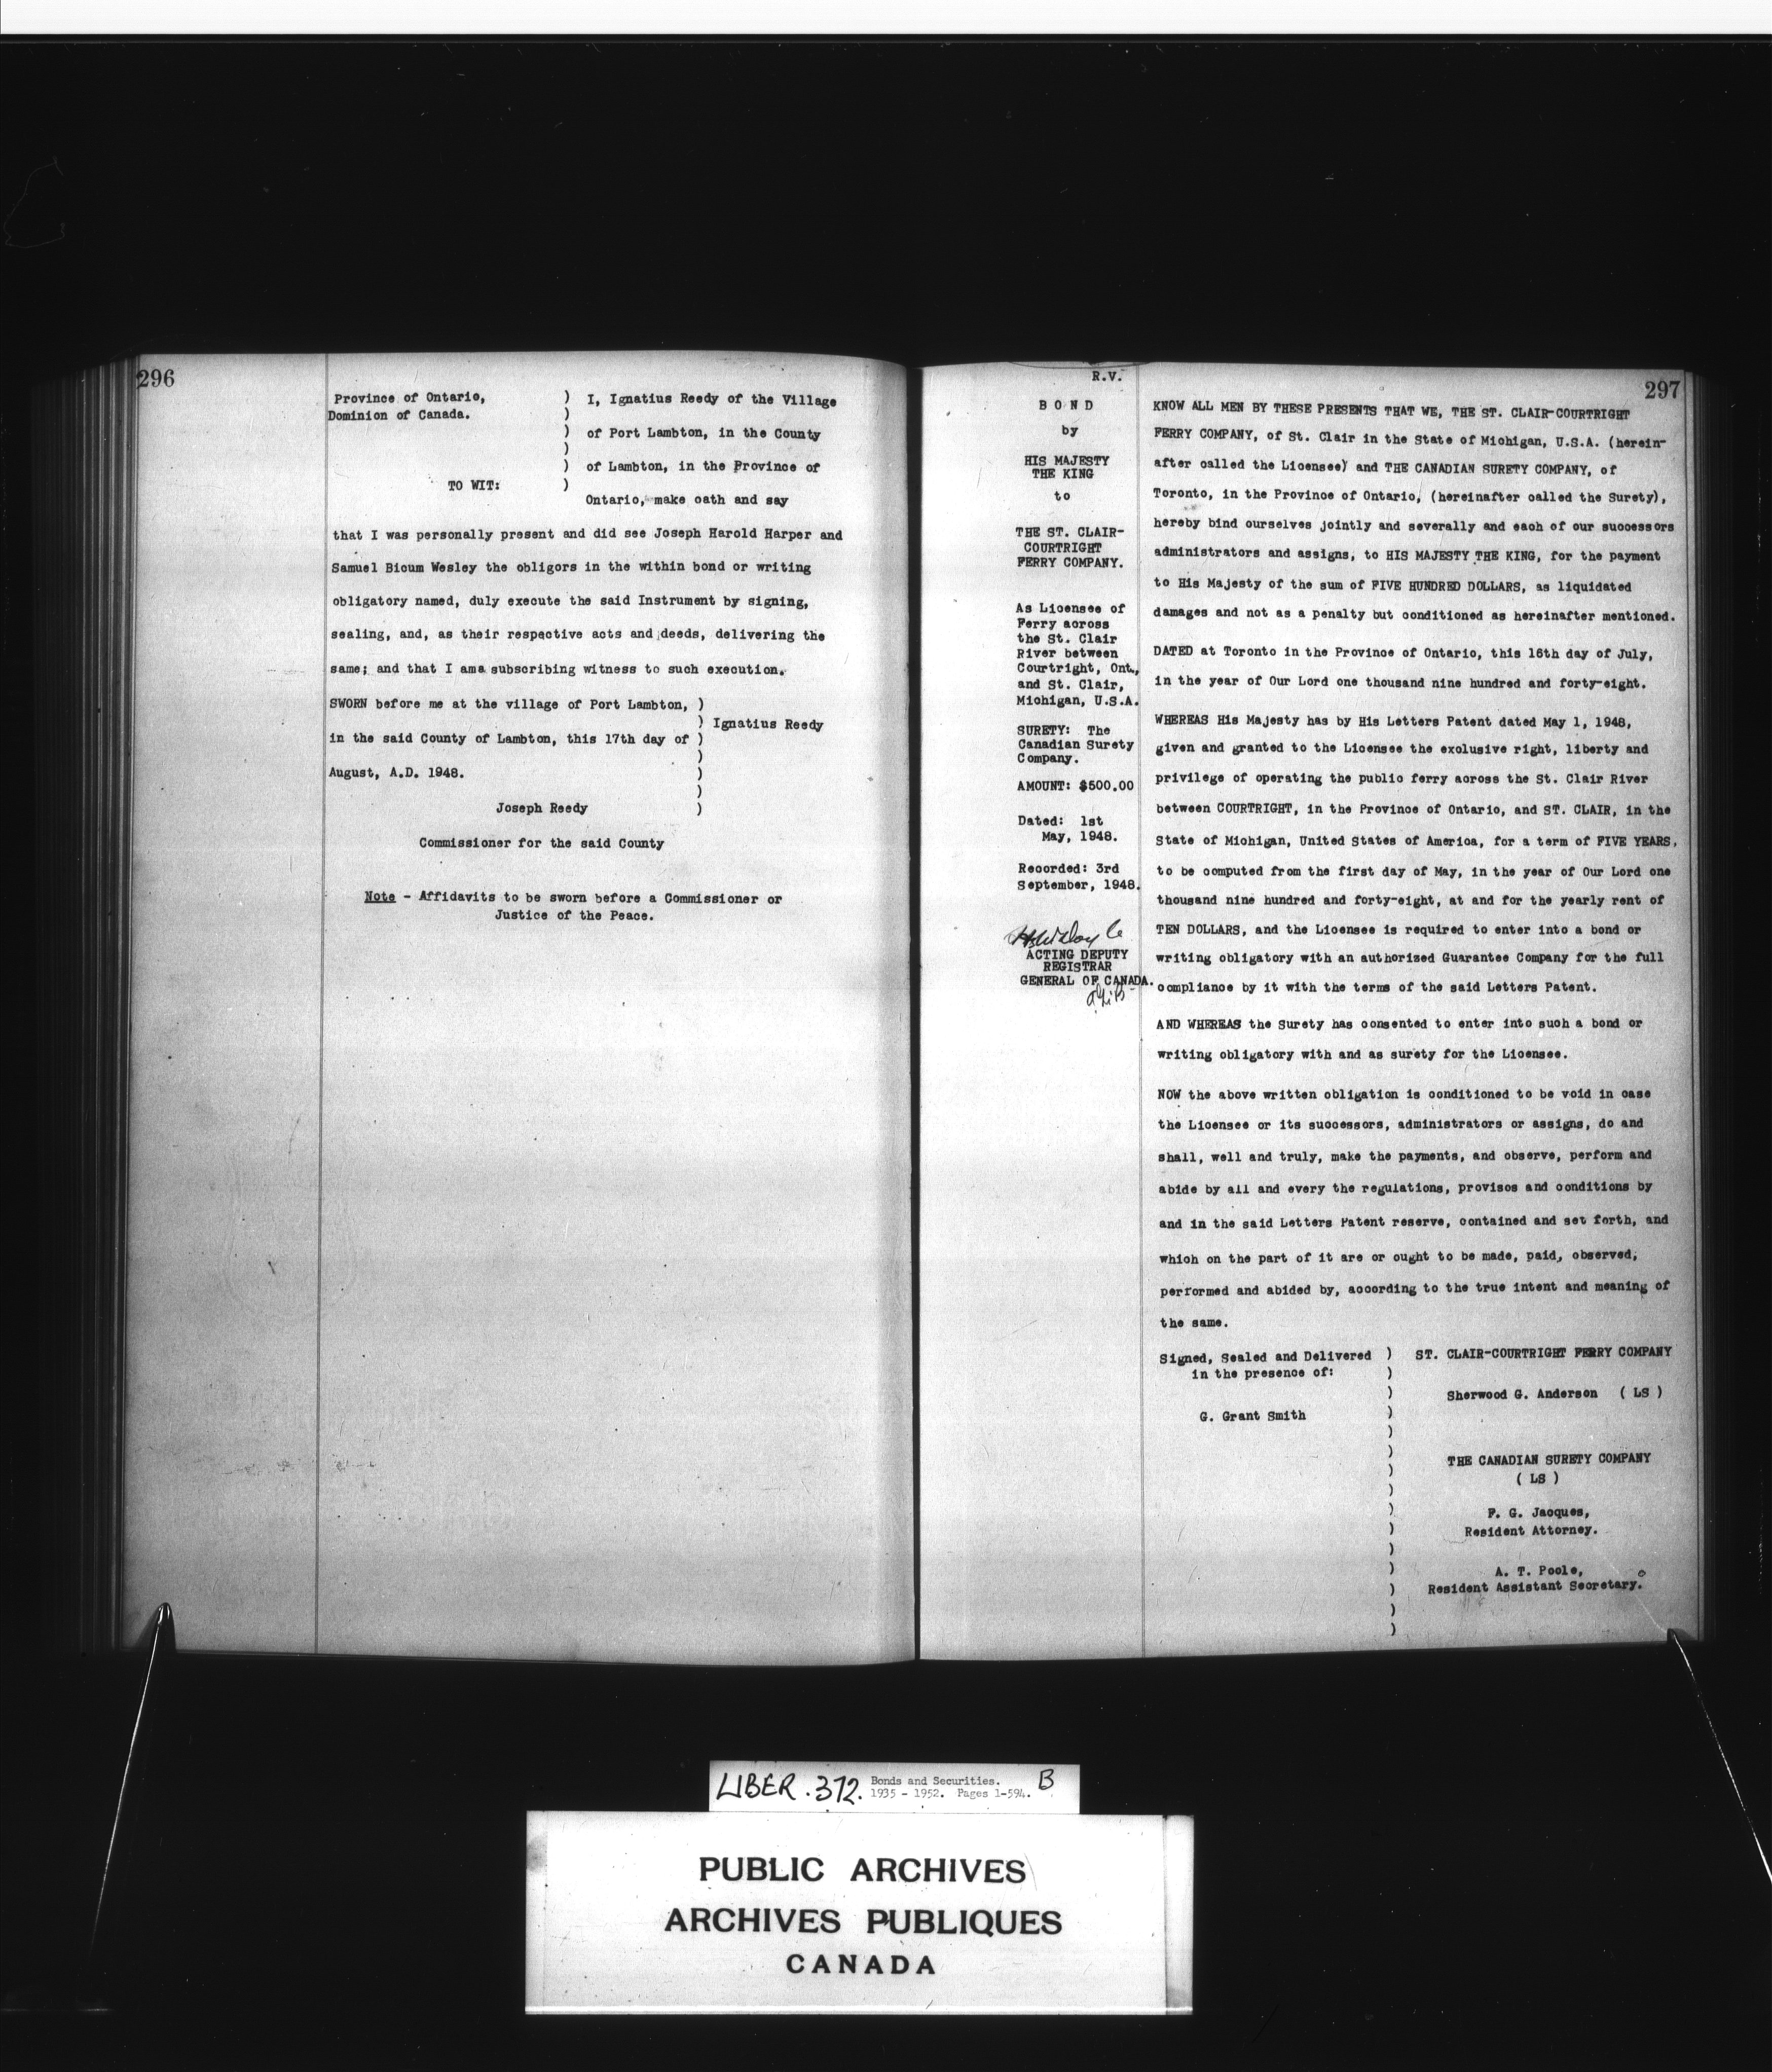 296
Province of Ontario,
Dominion of Canada.
TO WIT:
I, Ignatius Reedy of the Village
of Port Lambton, in the County
of Lambton, in the Province of
Ontario, make oath and say
that I was personally present and did see Joseph Harold Harper and
Samuel Bicum Wesley the obligors in the within bond or writing
obligatory named, duly execute the said Instrument by signing,
sealing, and, as their respective acts and deeds, delivering the
same; and that I am a subscribing witness to such execution.
SWORN before me at the village of Port Lambton, )
) Ignatius Reedy
in the said County of Lambton, this 17th day of )
August, A.D. 1948. )
Joseph Reedy )
Commissioner for the said County
Note - Affidavits to be sworn before a Commissioner or
Justice of the Peace.
R.V.
B O N D
by
HIS MAJESTY
THE KING
to
THE ST. CLAIR-
COURTRIGHT
FERRY COMPANY.
As Licensee of
Ferry across
the St. Clair
River between
Courtright, Ont.,
and St. Clair,
Michigan, U.S.A.
SURETY: The
Canadian Surety
Company.
AMOUNT: $500.00
Dated: 1st
May, 1948.
Recorded: 3rd
September, 1948.
ACTING DEPUTY
REGISTRAR
GENERAL OF CANADA.
297
KNOW ALL MEN BY THESE PRESENTS THAT WE, THE ST. CLAIR-COURTRIGHT
FERRY COMPANY, of St. Clair in the State of Michigan, U.S.A. (herein-
after called the Licensee) and THE CANADIAN SURETY COMPANY, of
Toronto, in the Province of Ontario, (hereinafter called the Surety),
hereby bind ourselves jointly and severally and each of our successors
administrators and assigns, to HIS MAJESTY THE KING, for the payment
to His Majesty of the sum of FIVE HUNDRED DOLLARS, as liquidated
damages and not as a penalty but conditioned as hereinafter mentioned.
DATED at Toronto in the Province of Ontario, this 16th day of July,
in the year of Our Lord one thousand nine hundred and forty-eight.
WHEREAS His Majesty has by His Letters Patent dated May 1, 1948,
given and granted to the Licensee the exclusive right, liberty and
privilege of operating the public ferry across the St. Clair River
between COURTRIGHT, in the Province of Ontario, and ST. CLAIR, in the
State of Michigan, United States of America, for a term of FIVE YEARS,
to be computed from the first day of May, in the year of Our Lord one
thousand nine hundred and forty-eight, at and for the yearly rent of
TEN DOLLARS, and the Licensee is required to enter into a bond or
writing obligatory with an authorized Guarantee Company for the full
compliance by it with the terms of the said Letters Patent.
AND WHEREAS the Surety has consented to enter into such a bond or
writing obligatory with and as surety for the Licensee.
NOW the above written obligation is conditioned to be void in case
the Licensee or its successors, administrators or assigns, do and
shall, well and truly, make the payments, and observe, perform and
abide by all and every the regulations, provisos and conditions by
and in the said Letters Patent reserve, contained and set forth, and
which on the part of it are or ought to be made, paid, observed,
performed and abided by, according to the true intent and meaning of
the same.
Signed, Sealed and Delivered )
in the presence of: )
G. Grant Smith
ST. CLAIR-COURTRIGHT FERRY COMPANY
Sherwood G. Anderson ( LS )
THE CANADIAN SURETY COMPANY
( LS )
F. G. Jacques,
Resident Attorney.
A. T. Poole,
Resident Assistant Secretary.
LIBER. 372. Bonds and Securities. B
1935 - 1952. Pages 1-594.
PUBLIC ARCHIVES
ARCHIVES PUBLIQUES
CANADA